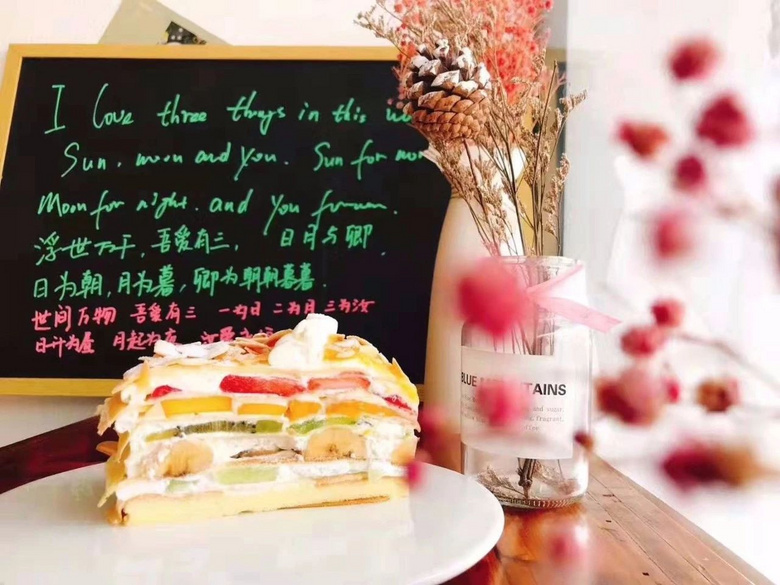 I love three thngs in this
Sun, moon and you. Sun for
Moon for night. and you forever.
浮世万千,吾爱有三, 日月与卿,
日为朝,月为暮,卿为朝朝暮暮.
世间万物 吾爱有三 一为日 二为月 三为汝
日升为昼 月起为夜
BLUE TAINS
and sugar
fragrant,
coffee